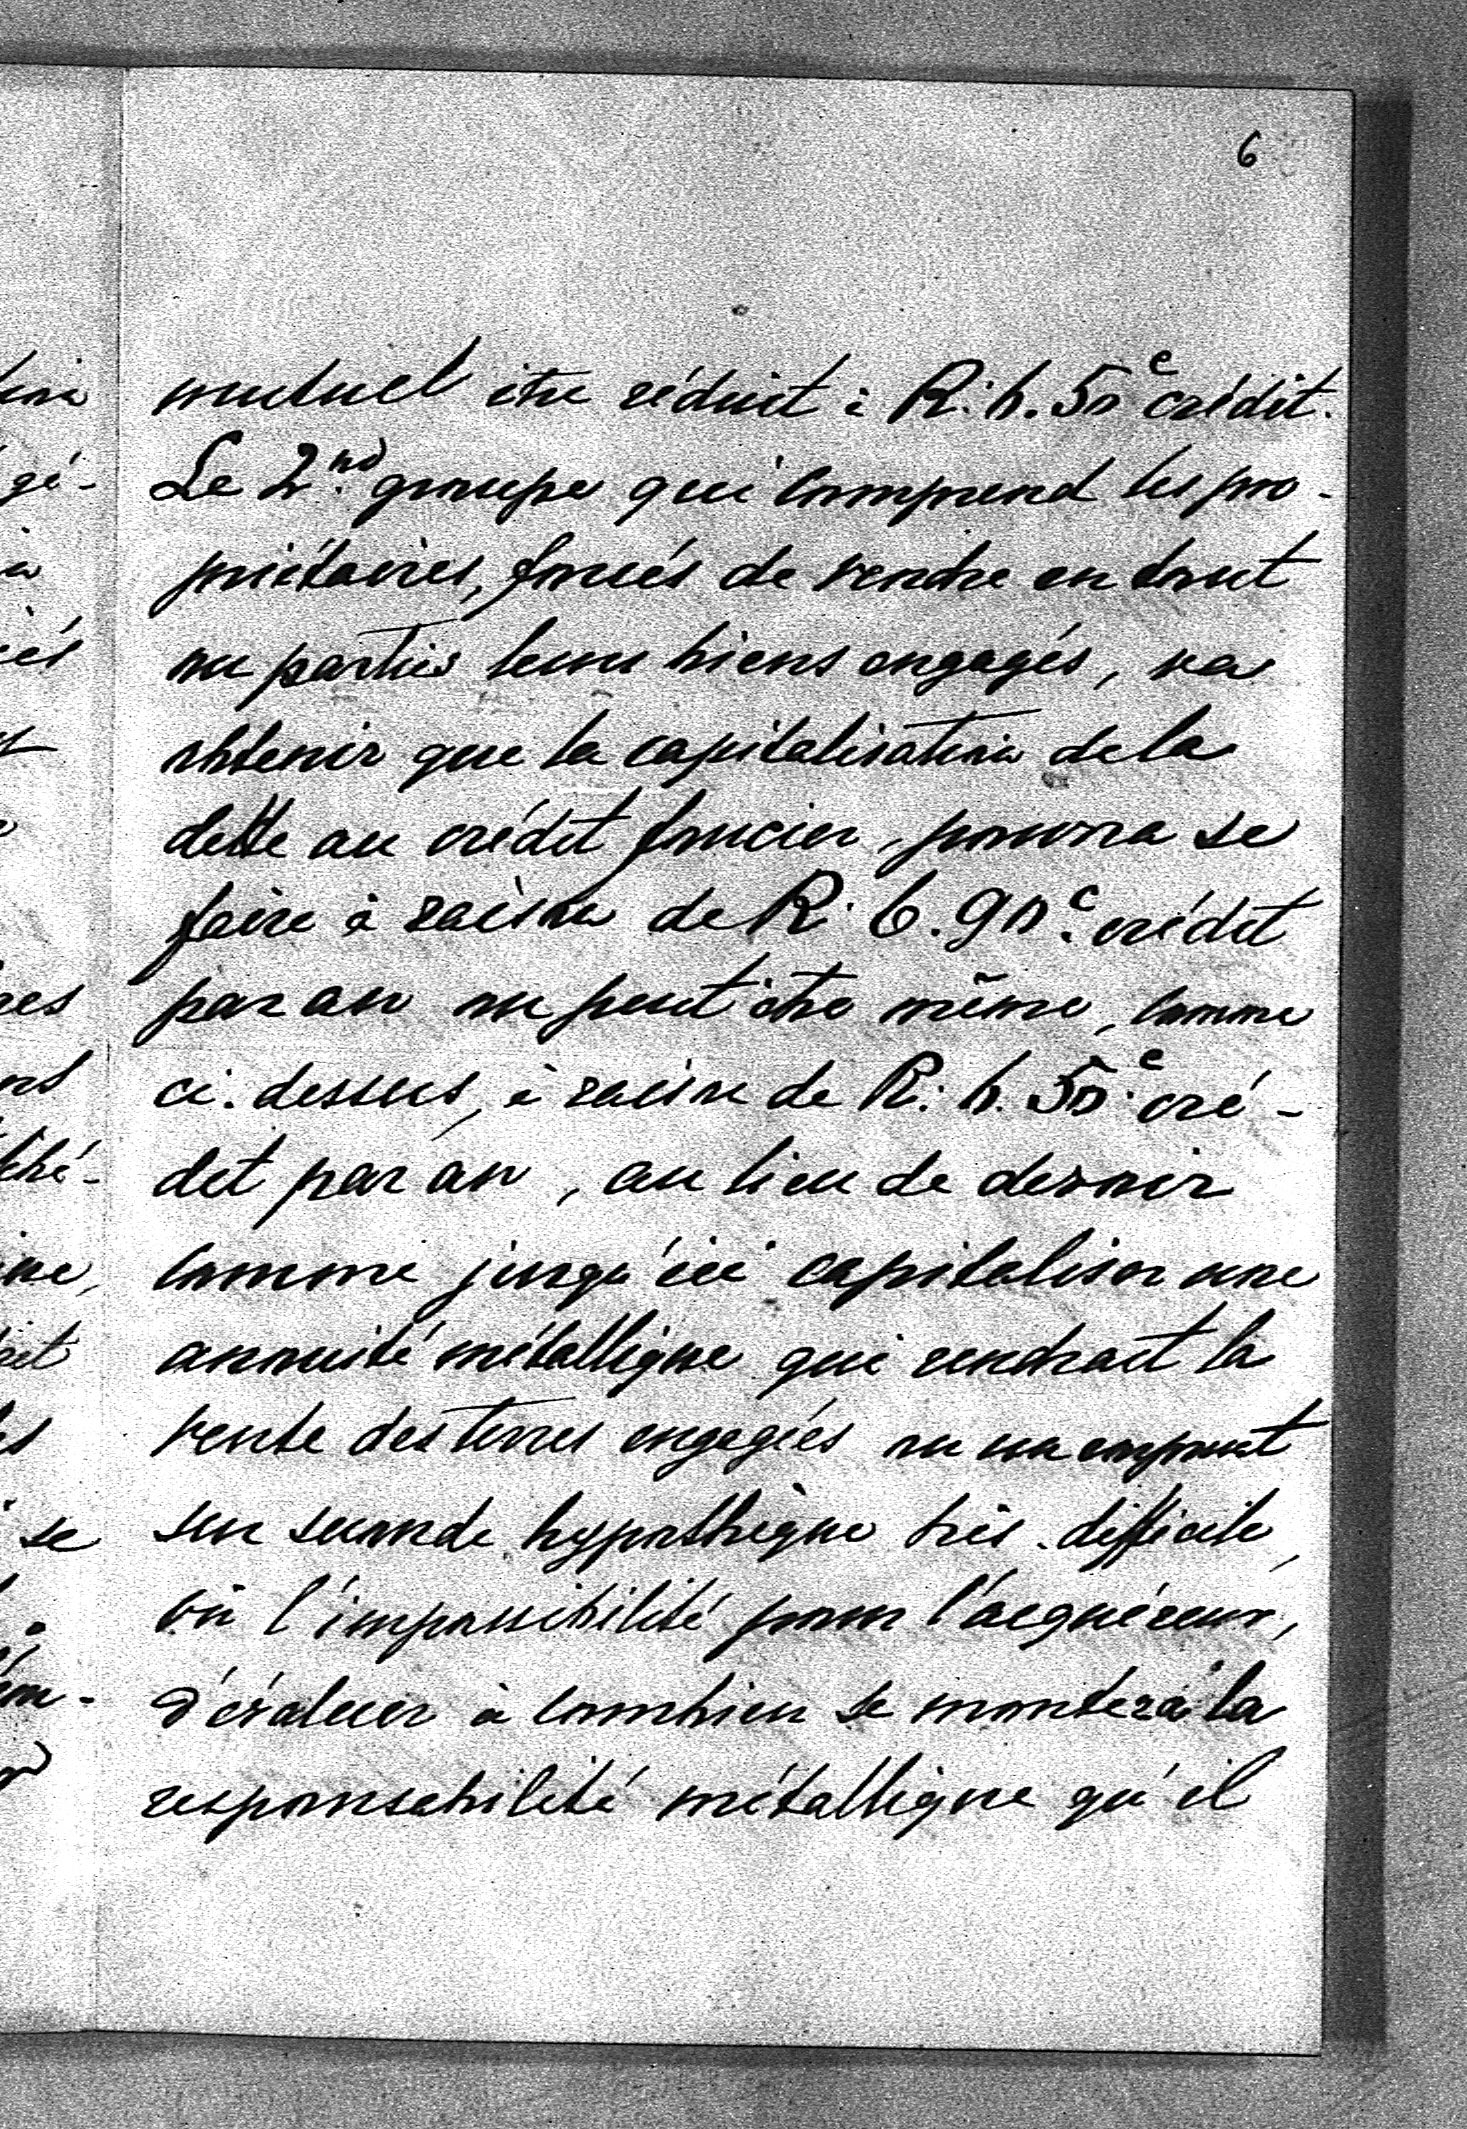 6
mutuel être réduit à R. 6. 50c crédit.
Le 2nd groupe qui comprend les pro-
priétaires, forcés de vendre en tout
ou partie leurs biens engagés, va
obtenir que la capitalisation de la
dette au crédit foncier, pourra se
faire à raison de R. 6. 90c. crédit
par an ou peut être même, comme
ci-dessus, à raison de R. 6. 50c cré-
dit par an, au lieu de devoir
comme jusqu'ici capitaliser une
annuité métallique qui rendrait la
vente des terres engagées ou un emprunt
sur seconde hypothèque très difficile,
vu l'impossibilité pour l'acquéreur,
d'évaluer à combien se montera la
responsabilité métallique qu'il